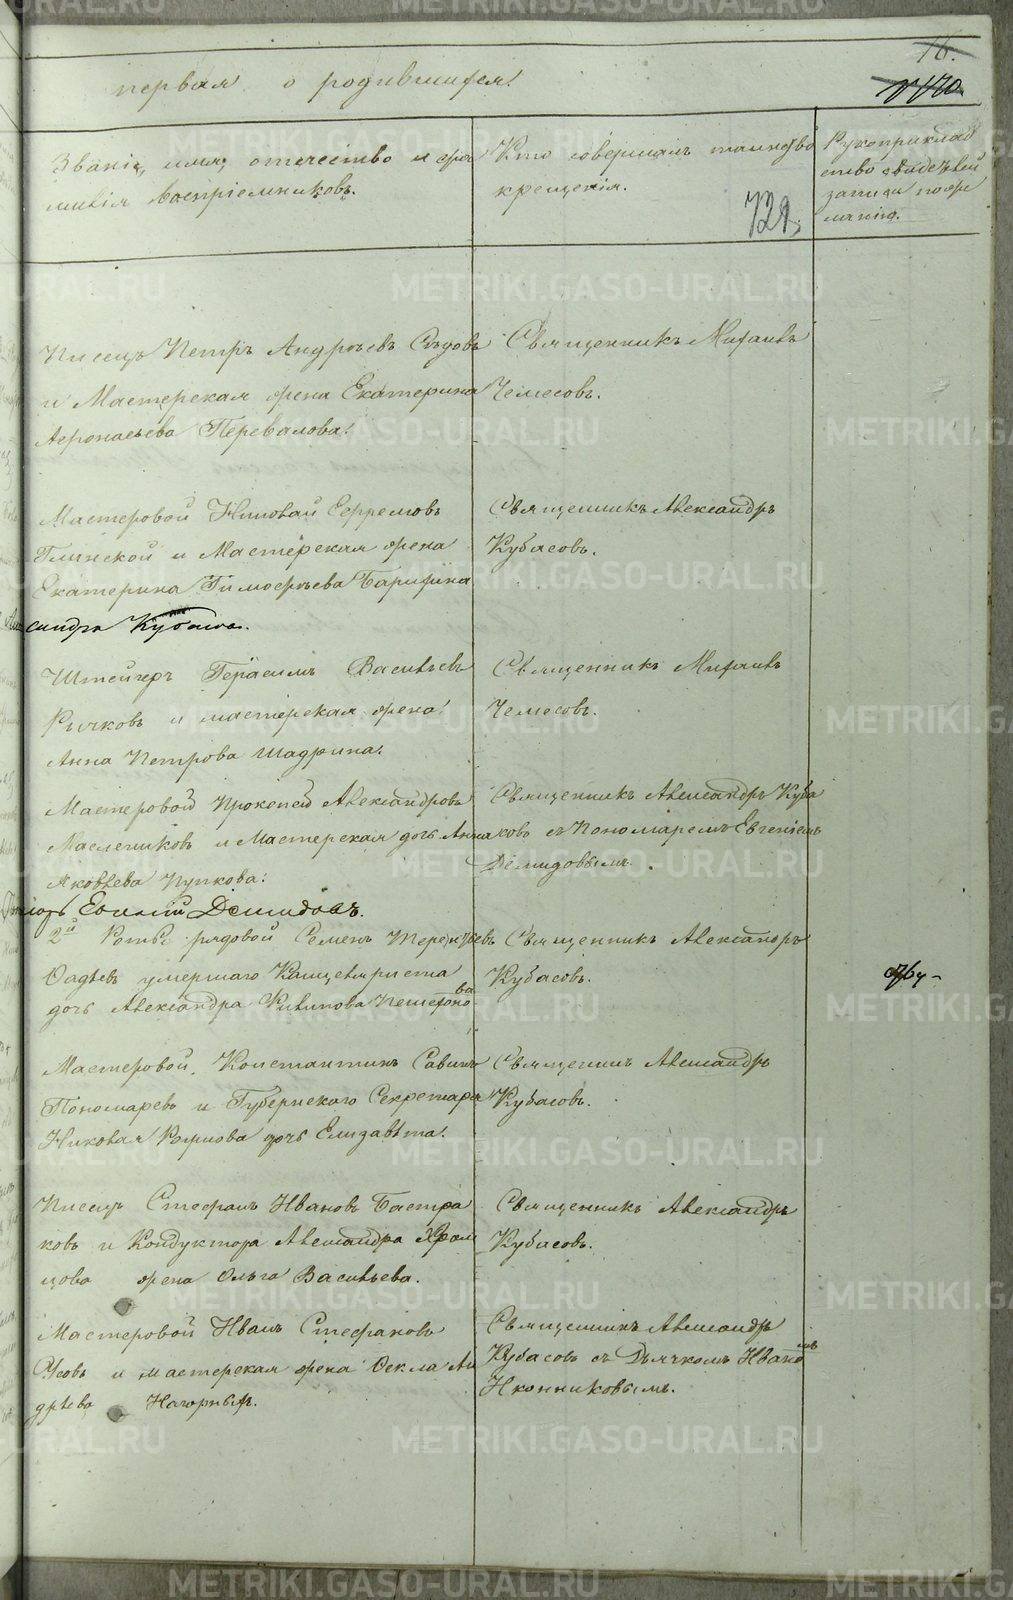 16.
первая о родившихся.
Званіе, имя, отечество и фа
милія воспріемниковъ.
Кто совершалъ таинство
крещенія.
729.
Рукоприклад
ство свидѣтелей
записи по же
ланію.
Писецъ Петръ Андреевъ Сѣдовъ
и Мастерская жена Екатерина
Афонасьева Перевалова.
Священникъ Михаилъ
Чемесовъ.
Мастеровой Николай Ефремовъ
Глинской и Мастерская жена
Екатерина Тимофѣева
Священникъ Александръ
Кубасовъ.
Штейгеръ Герасимъ Васильевъ
Рычковъ и мастерская жена
Анна Петрова Шадрина.
Священникъ Михаилъ
Чемесовъ.
Мастеровой Прокопей Александровъ
Масленниковъ и Мастерская дочь Анна
Яковлева Пупкова.
Священникъ Александръ Куба
совъ съ Пономаремъ Евгеніемъ
Демидовымъ.
Демидовъ.
2й рядовой Семенъ Терентьевъ
умершаго Канцеляриста
дочь Александра Филипова
Священникъ Александръ
Кубасовъ.
Мастеровой Константинъ Савинъ
Пономаревъ и Губернскаго Секретаря
Николая дочь Елизавета.
Священникъ Александръ
Кубасовъ.
Писецъ Стефанъ Ивановъ Бастра
ковъ и Кондуктора Александра Храм
цова жена Ольга Васильева.
Священникъ Александръ
Кубасовъ.
Мастеровой Иванъ Стефановъ
Усовъ и мастерская жена Фекла Ан
дрѣева Нагорныхъ.
Священникъ Александръ
Кубасовъ съ Дьячкомъ Иваномъ
Иконниковымъ.
METRIKI.GASO-URAL.RU